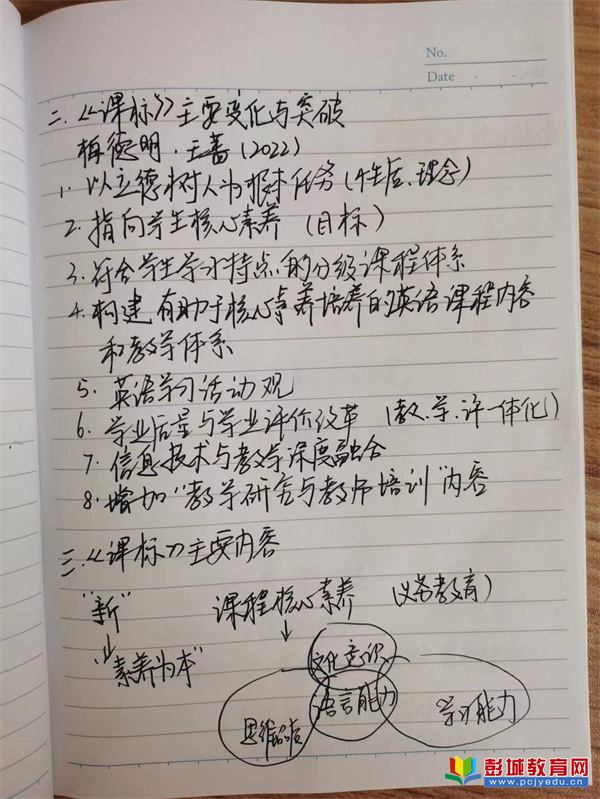 No.
Date
二.《课标》主要变化与突破
梅德明·王蔷(2022)
1. 以立德树人为根本任务(性质、理念)
2. 指向学生核心素养 (目标)
3. 符合学生学习特点的分级课程体系
4. 构建有助于核心素养培养的英语课程内容
和教学体系
5. 英语学习活动观
6. 学业质量与学业评价改革 (教、学、评一体化)
7. 信息技术与教学深度融合
8. 增加"教学研究与教师培训"内容
三.《课标》主要内容
"新" 课程核心素养 (义务教育)
↓ ↓
"素养为本"
文化意识
语言能力
思维品质
学习能力
彭城教育网
www.pcjyedu.cn